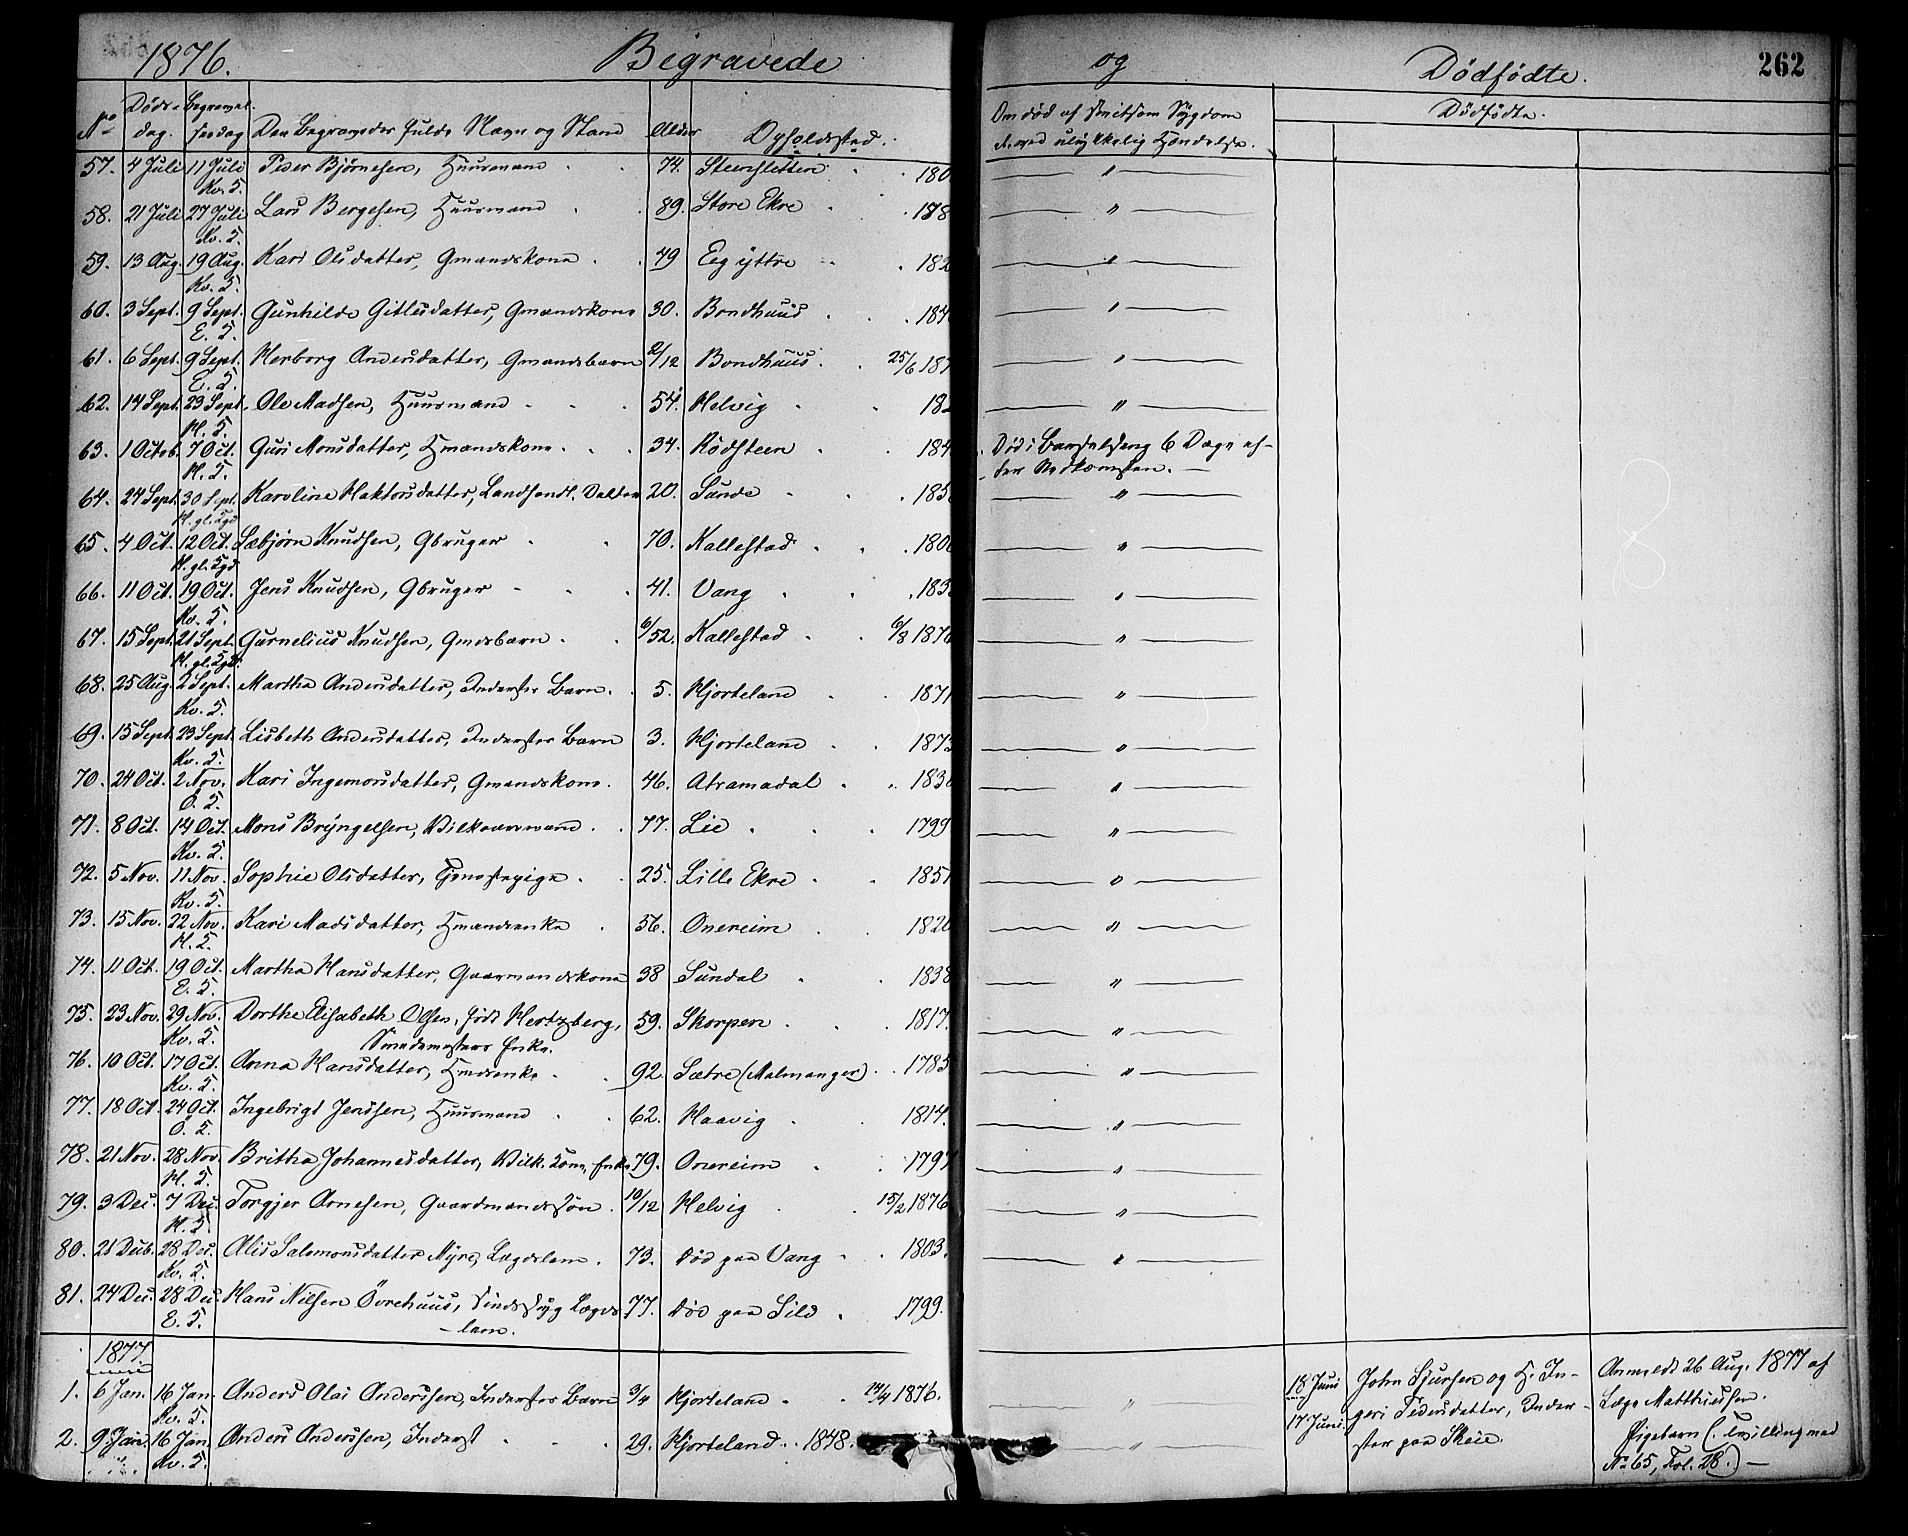 1876. Begravede og Dødfødte. 262
No Døds-dag. Begravel-sesdag Den Begravedes fulde Navn og Stand Alder Opholdssted.
Om død af smitsom Sygdom el. ved ulykkelig Hændelse. Dødfødte.
57. 4 Juli 11 Juli Kv. S. Peder Bjørnesen, Huusmand 74. Steensletten 180
58. 21 Juli 27 Juli Kv. S. Lars Bergesen, Huusmand 89. Store Ekre 178
59. 13 Aug. 19 Aug. Kv. S. Kari Olsdatter, Gmandskone 49 Eeg yttre 182
60. 3 Sept. 9 Sept. E. S. Gunhilde Gitlesdatter, Gmandskone 30. Bondhuus 184
61. 6 Sept. 9 Sept. E. S. Herborg Andersdatter, Gmandsbarn 2/12 Bondhuus 25/6 187
62. 14 Sept. 23 Sept. H. S. Ole Madsen, Huusmand 54. Helvig 182
63. 1 Octob. 7 Oct. H. S. Guri Monsdatter, Hmandskone 34. Rødsteen 184 Død i Barselseng 6 Dage ef-
ter Nedkomsten.
64. 24 Sept. 30 Sept. H. gl. Kgd Karoline Haktorsdatter, Landhandl. Datter 20. Sunde 185
65. 4 Oct. 12 Oct. H. gl. Kgd Sæbjørn Knudsen, Gbruger 70. Kallestad 180
66. 11 Oct. 19 Oct. Kv. S. Jens Knudsen, Gbruger 41. Vang 183
67. 15 Sept. 21 Sept. H. gl. Kgd. Gurnelius Knudsen, Gmdsbarn 6/52. Kallestad 6/8 1876
68. 25 Aug. 2 Sept. Kv. S. Martha Andersdatter, Inderster Barn 5. Hjorteland 1871
69. 15 Sept. 23 Sept. Kv. S. Lisbeth Andersdatter, Inderstes Barn 3. Hjorteland 1873
70. 24 Oct. 2 Nov. Ö. S. Kari Ingemorsdatter, Gmandskone 46. Atramadal 1830
71. 8 Oct. 14 Oct. Kv. S. Mons Bryngelsen, Vilkaarmand 77. Lie 1799
72. 5 Nov. 11 Nov. Kv. S. Sophie Olsdatter, Tjenestepige 25. Lille Ekre 1851
73. 15 Nov. 22 Nov. H. S. Kari Madsdatter, Hmandsenke 56. Onereim 1820
74. 11 Oct. 19 Oct. E. S. Martha Hansdatter, Gaarmandskone 38 Sundal 1838
75. 23 Nov. 29 Nov. Kv. S. Dorthe Elisabeth Olsen, født Hertzberg, 59. Skorpen 1817.
Smedemesters Enke.
76. 10 Oct. 17 Oct. Kv. S. Anna Hansdatter, Hmdsenke 92. Sætre (Malmanger) 1785
77. 18 Oct. 24 Oct. Ö. S. Ingebrigt Jenssen, Huusmand 62. Haavig 1814.
78. 21 Nov. 28 Nov. H. S. Britha Johannesdatter, Vilk. Kone, Enke 79. Onereim 1797
79. 3 Dec. 7 Dec. H. S. Torgjer Arnesen, Gaardmandssøn 10/12 Helvig 15/2 1876
80. 21 Decb. 28 Dec. Kv. S. Alis Salemonsdatter Myre, Lægdslem 73. død paa Vang 1803.
81. 24 Dec. 28 Dec. E. S. Hans Nilsen Övrehuus, Sindssyg Lægds 77. død paa Sild 1799.
-lem.
1877
1. 6 Jan. 16 Jan. Kv. S. Anders Olai Anderssen, Inderstes Barn 3/4 Hjorteland 14/4 1876.
2. 9 Jan. 16 Jan Kv. S. Anders Anderssen, Inderst 29. Hjorteland 1848.
18 Juni
17 Juni
John Sjursen og H. In-
geri Pedersdatter, Inder-
ster paa Skeie.
Anmeldt 26 Aug. 1877 af
Læge Matthiessen.
Pigebarn (Tvilling med
No 65, Fol. 28.)